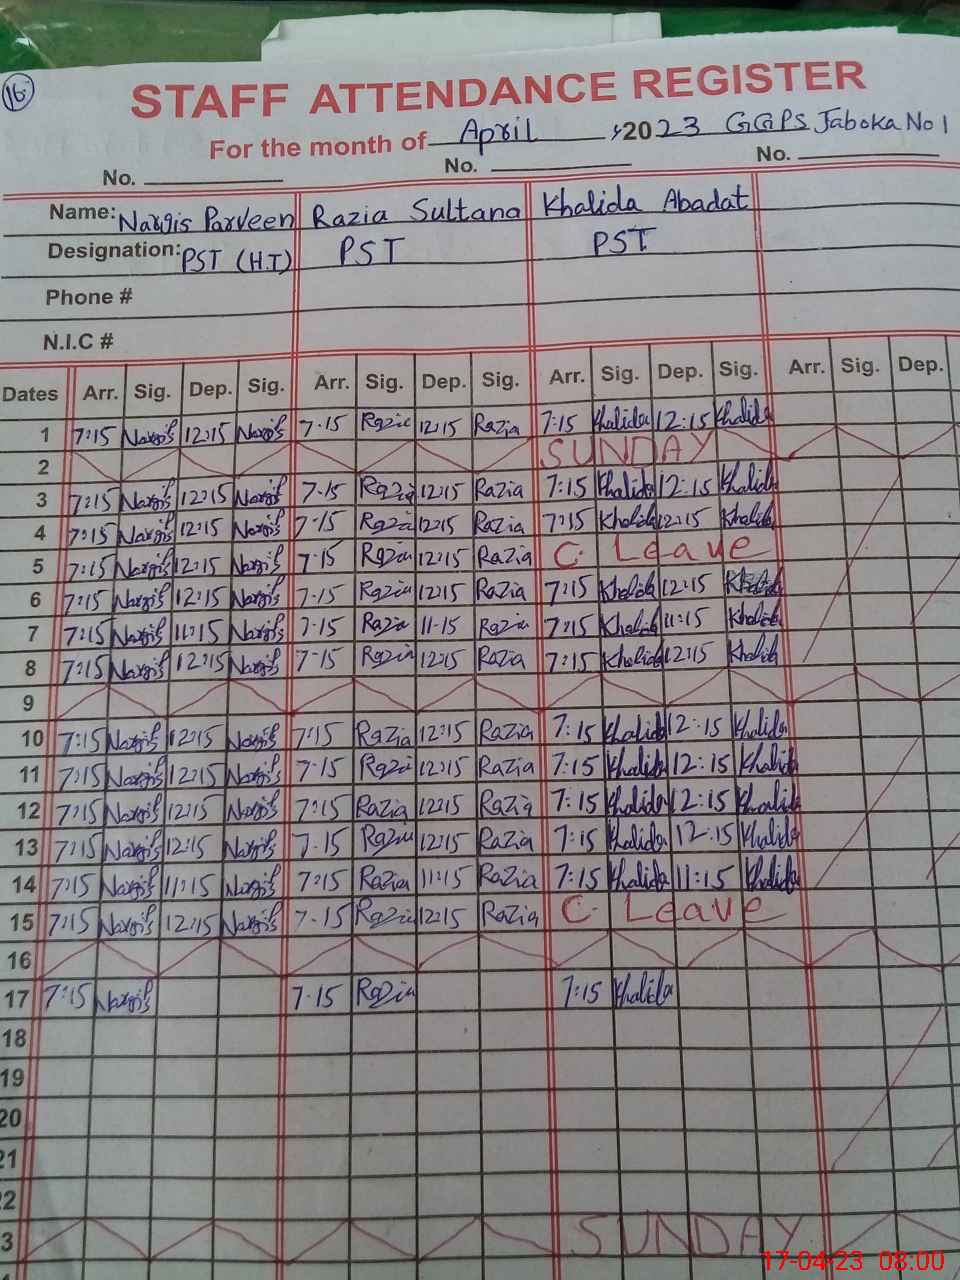 16
STAFF ATTENDANCE REGISTER
For the month of April, 2023 GGPS Jaboka No 1
No. No. No.
Name: Nargis Parveen Razia Sultana Khalida Abadat
Designation: PST (H.T) PST PST
Phone #
N.I.C #
Dates Arr. Sig. Dep. Sig. Arr. Sig. Dep. Sig. Arr. Sig. Dep. Sig. Arr. Sig. Dep.
1 7:15 Nargis 12:15 Nargis 7-15 Razia 12:15 Razia 7:15 Khalida 12:15 Khalida
2 SUNDAY
3 7:15 Nargis 12:15 Nargis 7-15 Razia 12:15 Razia 7:15 Khalida 12:15 Khalida
4 7:15 Nargis 12:15 Nargis 7-15 Razia 12:15 Razia 7:15 Khalida 12:15 Khalida
5 7:15 Nargis 12:15 Nargis 7-15 Razia 12:15 Razia C. Leave
6 7:15 Nargis 12:15 Nargis 7:15 Razia 12:15 Razia 7:15 Khalida 12:15 Khalida
7 7:15 Nargis 11:15 Nargis 7-15 Razia 11-15 Razia 7:15 Khalida 11:15 Khalida
8 7:15 Nargis 12:15 Nargis 7-15 Razia 12:15 Razia 7:15 Khalida 12:15 Khalida
9
10 7:15 Nargis 12:15 Nargis 7:15 Razia 12:15 Razia 7:15 Khalida 12:15 Khalida
11 7:15 Nargis 12:15 Nargis 7-15 Razia 12:15 Razia 7:15 Khalida 12:15 Khalida
12 7:15 Nargis 12:15 Nargis 7:15 Razia 12:15 Razia 7:15 Khalida 12:15 Khalida
13 7:15 Nargis 12:15 Nargis 7-15 Razia 12:15 Razia 7:15 Khalida 12:15 Khalida
14 7:15 Nargis 11:15 Nargis 7:15 Razia 11:15 Razia 7:15 Khalida 11:15 Khalida
15 7:15 Nargis 12:15 Nargis 7-15 Razia 12:15 Razia C. Leave
16
17 7:15 Nargis 7-15 Razia 7:15 Khalida
18
19
20
21
22
3 SUNDAY
17-04-23 08:00